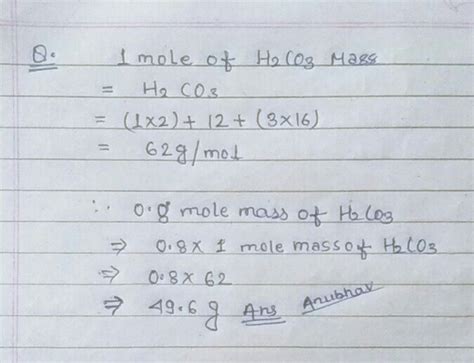 Q. 1 mole of H2CO3 Mass
= H2 CO3
= (1x2) + 12 + (3x16)
= 62g/mol
∵ 0.8 mole mass of H2CO3
⇒ 0.8x 1 mole mass of H2CO3
⇒ 0.8x 62
⇒ 49.6 g Ans Anubhav